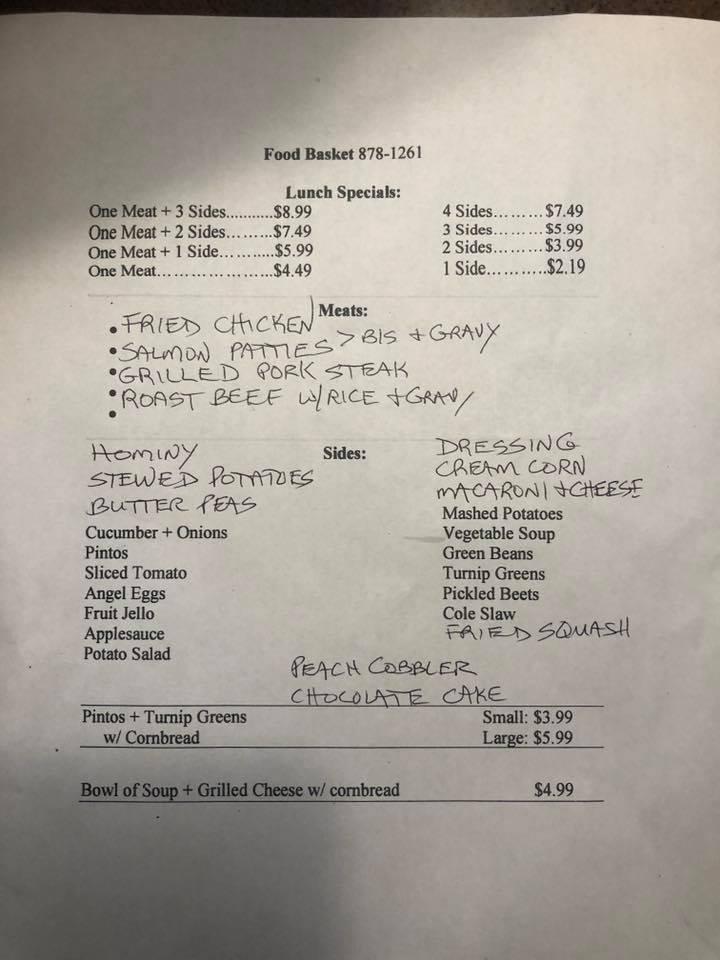 Food Basket 878-1261
Lunch Specials:
One Meat + 3 Sides...........$8.99
One Meat + 2 Sides........$7.49
One Meat + 1 Side............$5.99
One Meat......................$4.49
4 Sides.........$7.49
3 Sides.........$5.99
2 Sides.........$3.99
1 Side...........$2.19
Meats:
• FRIED CHICKEN
• SALMON PATTIES > BIS + GRAVY
• GRILLED PORK STEAK
• ROAST BEEF W/RICE + GRAVY
•
Sides:
HOMINY
STEWED POTATOES
BUTTER PEAS
Cucumber + Onions
Pintos
Sliced Tomato
Angel Eggs
Fruit Jello
Applesauce
Potato Salad
DRESSING
CREAM CORN
MACARONI + CHEESE
Mashed Potatoes
Vegetable Soup
Green Beans
Turnip Greens
Pickled Beets
Cole Slaw
FRIED SQUASH
PEACH COBBLER
CHOCOLATE CAKE
Pintos + Turnip Greens Small: $3.99
w/ Cornbread Large: $5.99
Bowl of Soup + Grilled Cheese w/ cornbread $4.99